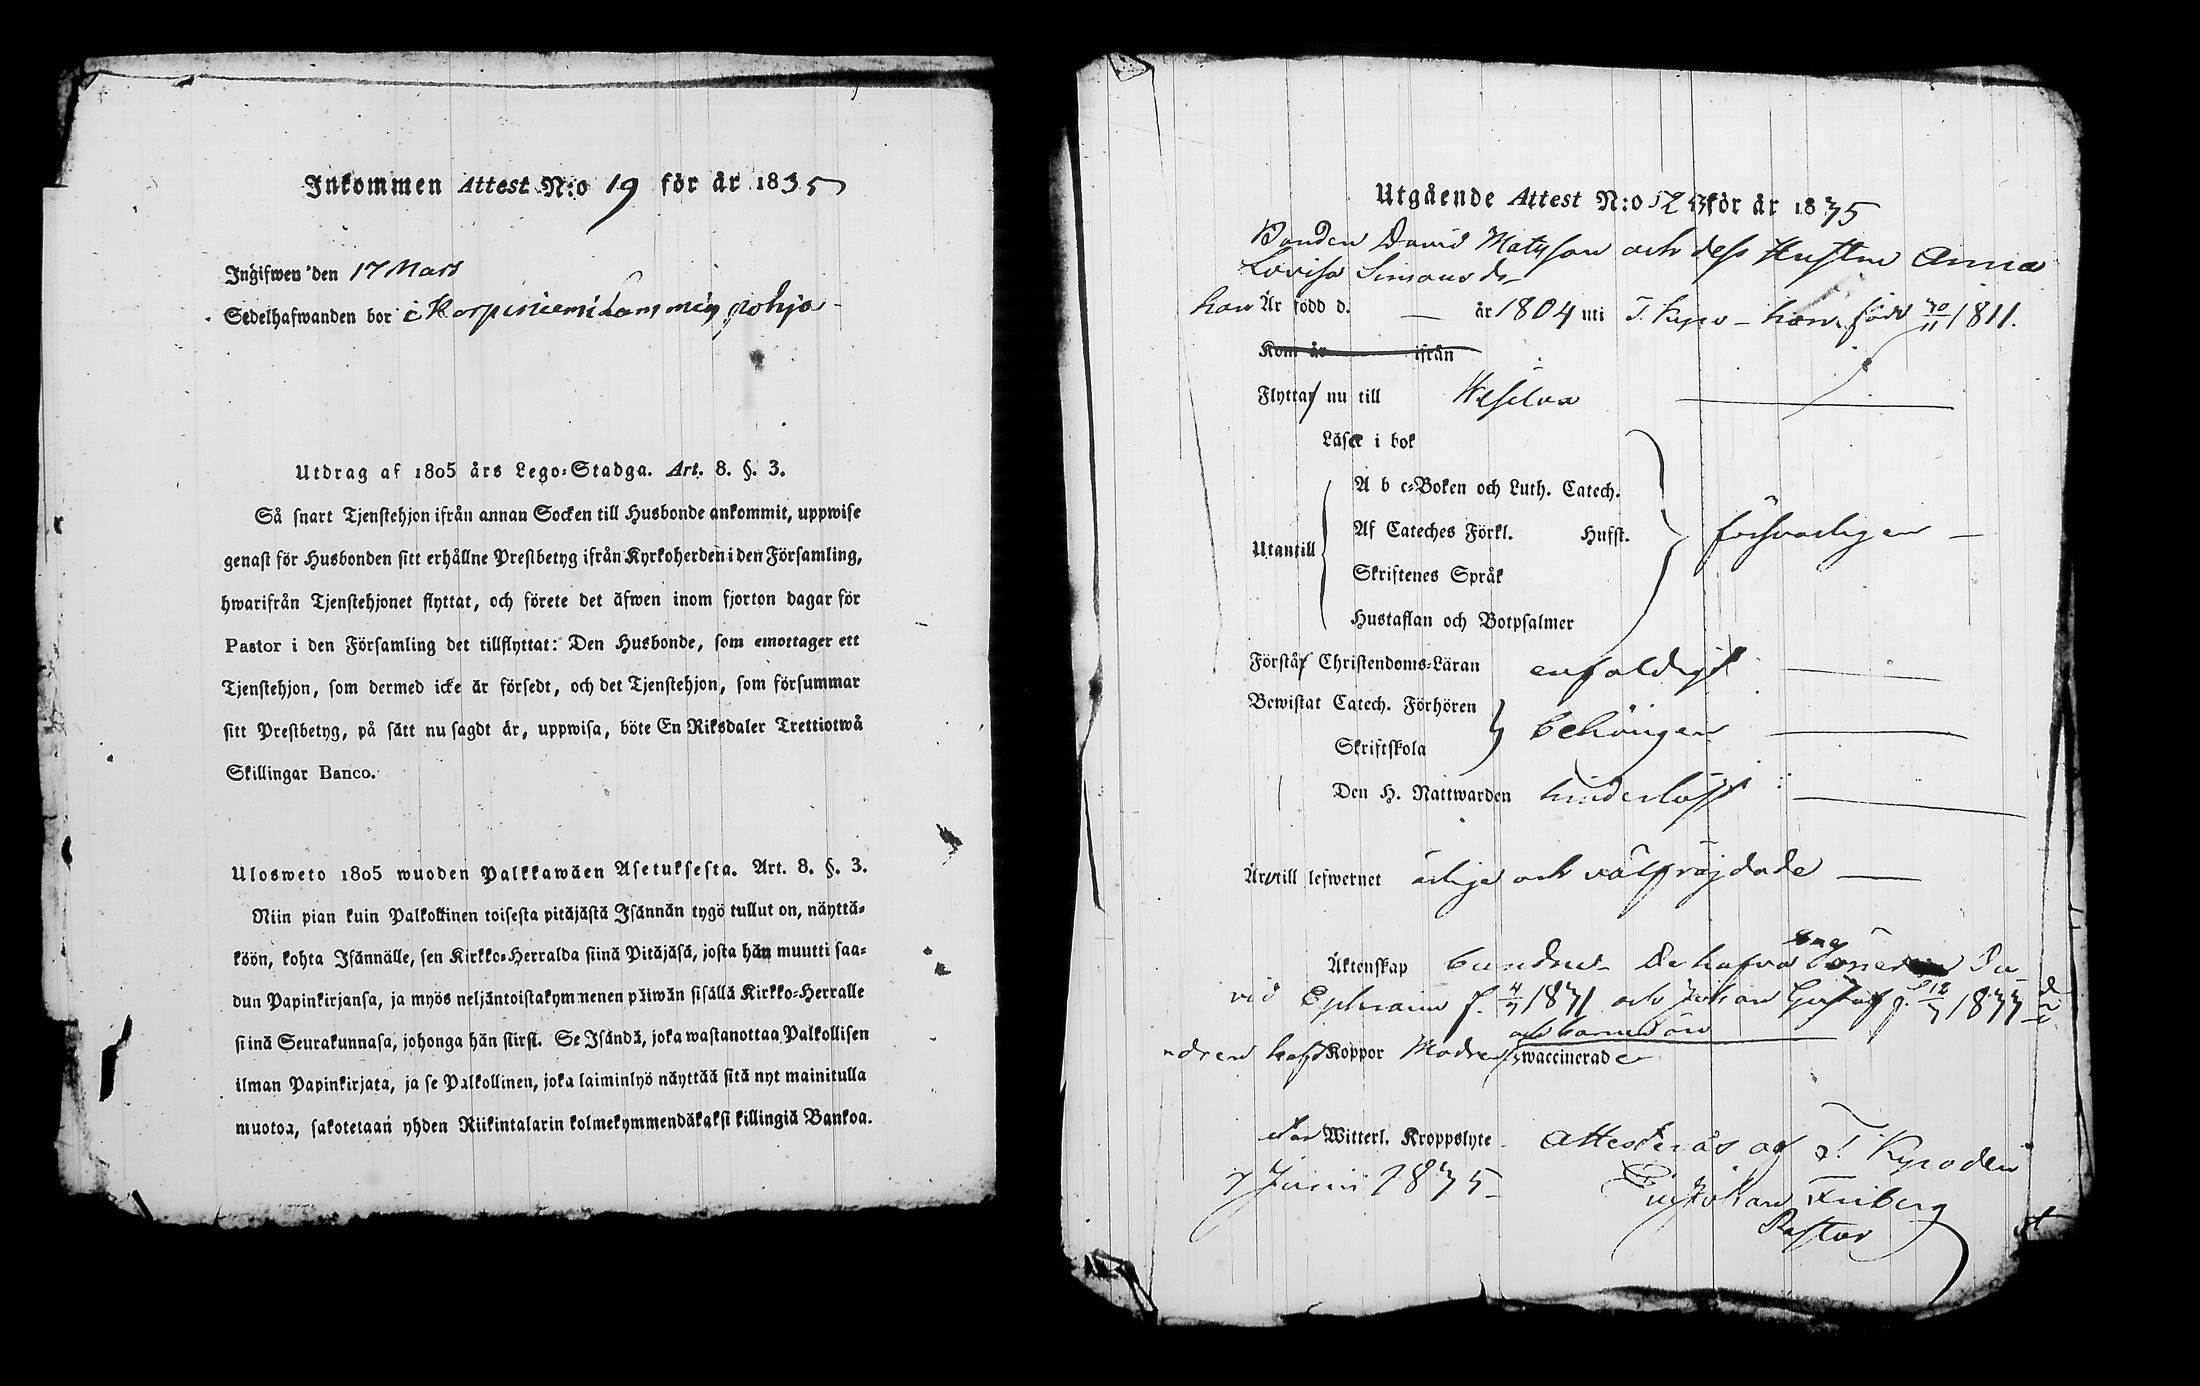 Inkommen Attest N:o 19 för år 1835
Ingifwen den 17 Mars
Sedelhafwanden bor i Korpiniemi Lammin pohja
Utdrag af 1805 års Lego-Stadga. Art. 8. §. 3.
Så snart Tjenstehjon ifrån annan Socken till Husbonde ankommit, uppwise
genast för Husbonden sitt erhållne Prestbetyg ifrån Kyrkoherden i den Församling,
hwarifrån Tjenstehjonet flyttat, och förete det äfwen inom fjorton dagar för
Pastor i den Församling det tillflyttat: Den Husbonde, som emottager ett
Tjenstehjon, som dermed icke är försedt, och det Tjenstehjon, som försummar
sitt Prestbetyg, på sätt nu sagdt är, uppwisa, böte En Riksdaler Trettiotwå
Skillingar Banco.
Ulosweto 1805 wuoden Palkkawäen Asetuksesta. Art. 8. §. 3.
Niin pian kuin Palkollinen toisesta pitäjästä Isännän tygö tullut on, näyttä-
köön, kohta Isännälle, sen Kirkko-Herralda siinä Pitäjäsä, josta hän muutti saa-
dun Papinkirjansa, ja myös neljäntoistakymmenen päiwän sisällä Kirkko-Herralle
siinä Seurakunnasa, johonga hän siirsi. Se Isändä, joka wastanottaa Palkollisen
ilman Papinkirjata, ja se Palkollinen, joka laiminlyö näyttää sitä nyt mainitulla
muotoa, sakotetaan yhden Riikintalarin kolmekymmendäkaksi killingiä Bankoa.
Utgående Attest N:o 52 för år 1835
Bonden David Matsson och dess Hustru Anna
Lovisa Simonsdr
han Är född d. — år 1804 uti T. Kyro – hon född 30/11 1811.
Kom år ifrån
Flytta nu till Wesilax
Läser i bok
A b c-Boken och Luth. Catech.
Af Cateches Förkl. Husst.
Utantill försvarligen
Skriftenes Språk
Hustaflan och Botpsalmer
Förstå Christendoms-Läran enfaldigt
Bewistat Catech. Förhören
behörigen
Skriftskola
Den H. Nattwarden hinderlöst
Äro till lefwernet ärlige och välfräjdade
Äktenskap bundne. De hafva Söner Da
vid Ephraim f. 4/7 1831 och Johan Gustaf f. 12/7 1833
och barnen äro
Koppor Modren waccinerade
Witterl. Kroppslyte Attesteras af T. Kyro den
7 Junii 1835 Johan Friberg
Pastor